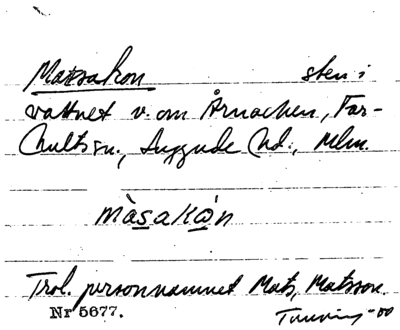 Matsakon sten i
vattnet v. om Årnacken, Far-
hults sn., Luggude hd., Mlm.
màsakǻn
Trol. personnamnet Mats, Matsson.
Nr 5677.